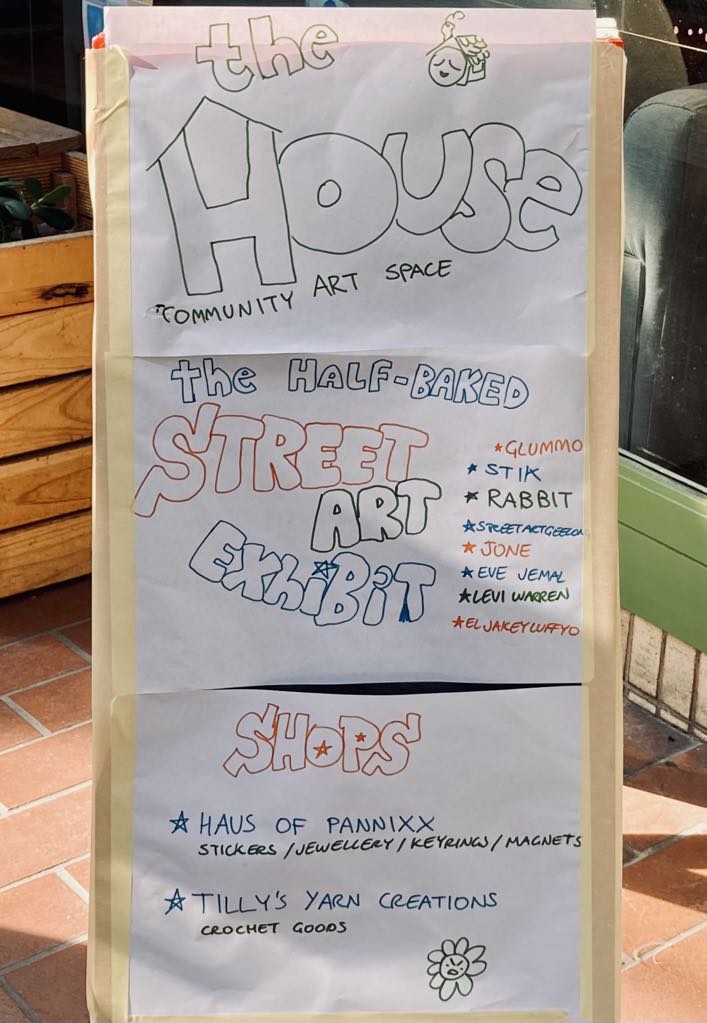 the
HOUSE
COMMUNITY ART SPACE
the HALF-BAKED
STREET
ART
EXHiBiT
★GLUMMO
★STIK
★RABBIT
★STREETARTGEELONG
★JONE
★EVE JEMAL
★LEVI WARREN
★ELJAKEYLUFFYO
SHOPS
☆ HAUS OF PANNIXX
STICKERS / JEWELLERY / KEYRINGS / MAGNETS
☆ TILLY'S YARN CREATIONS
CROCHET GOODS